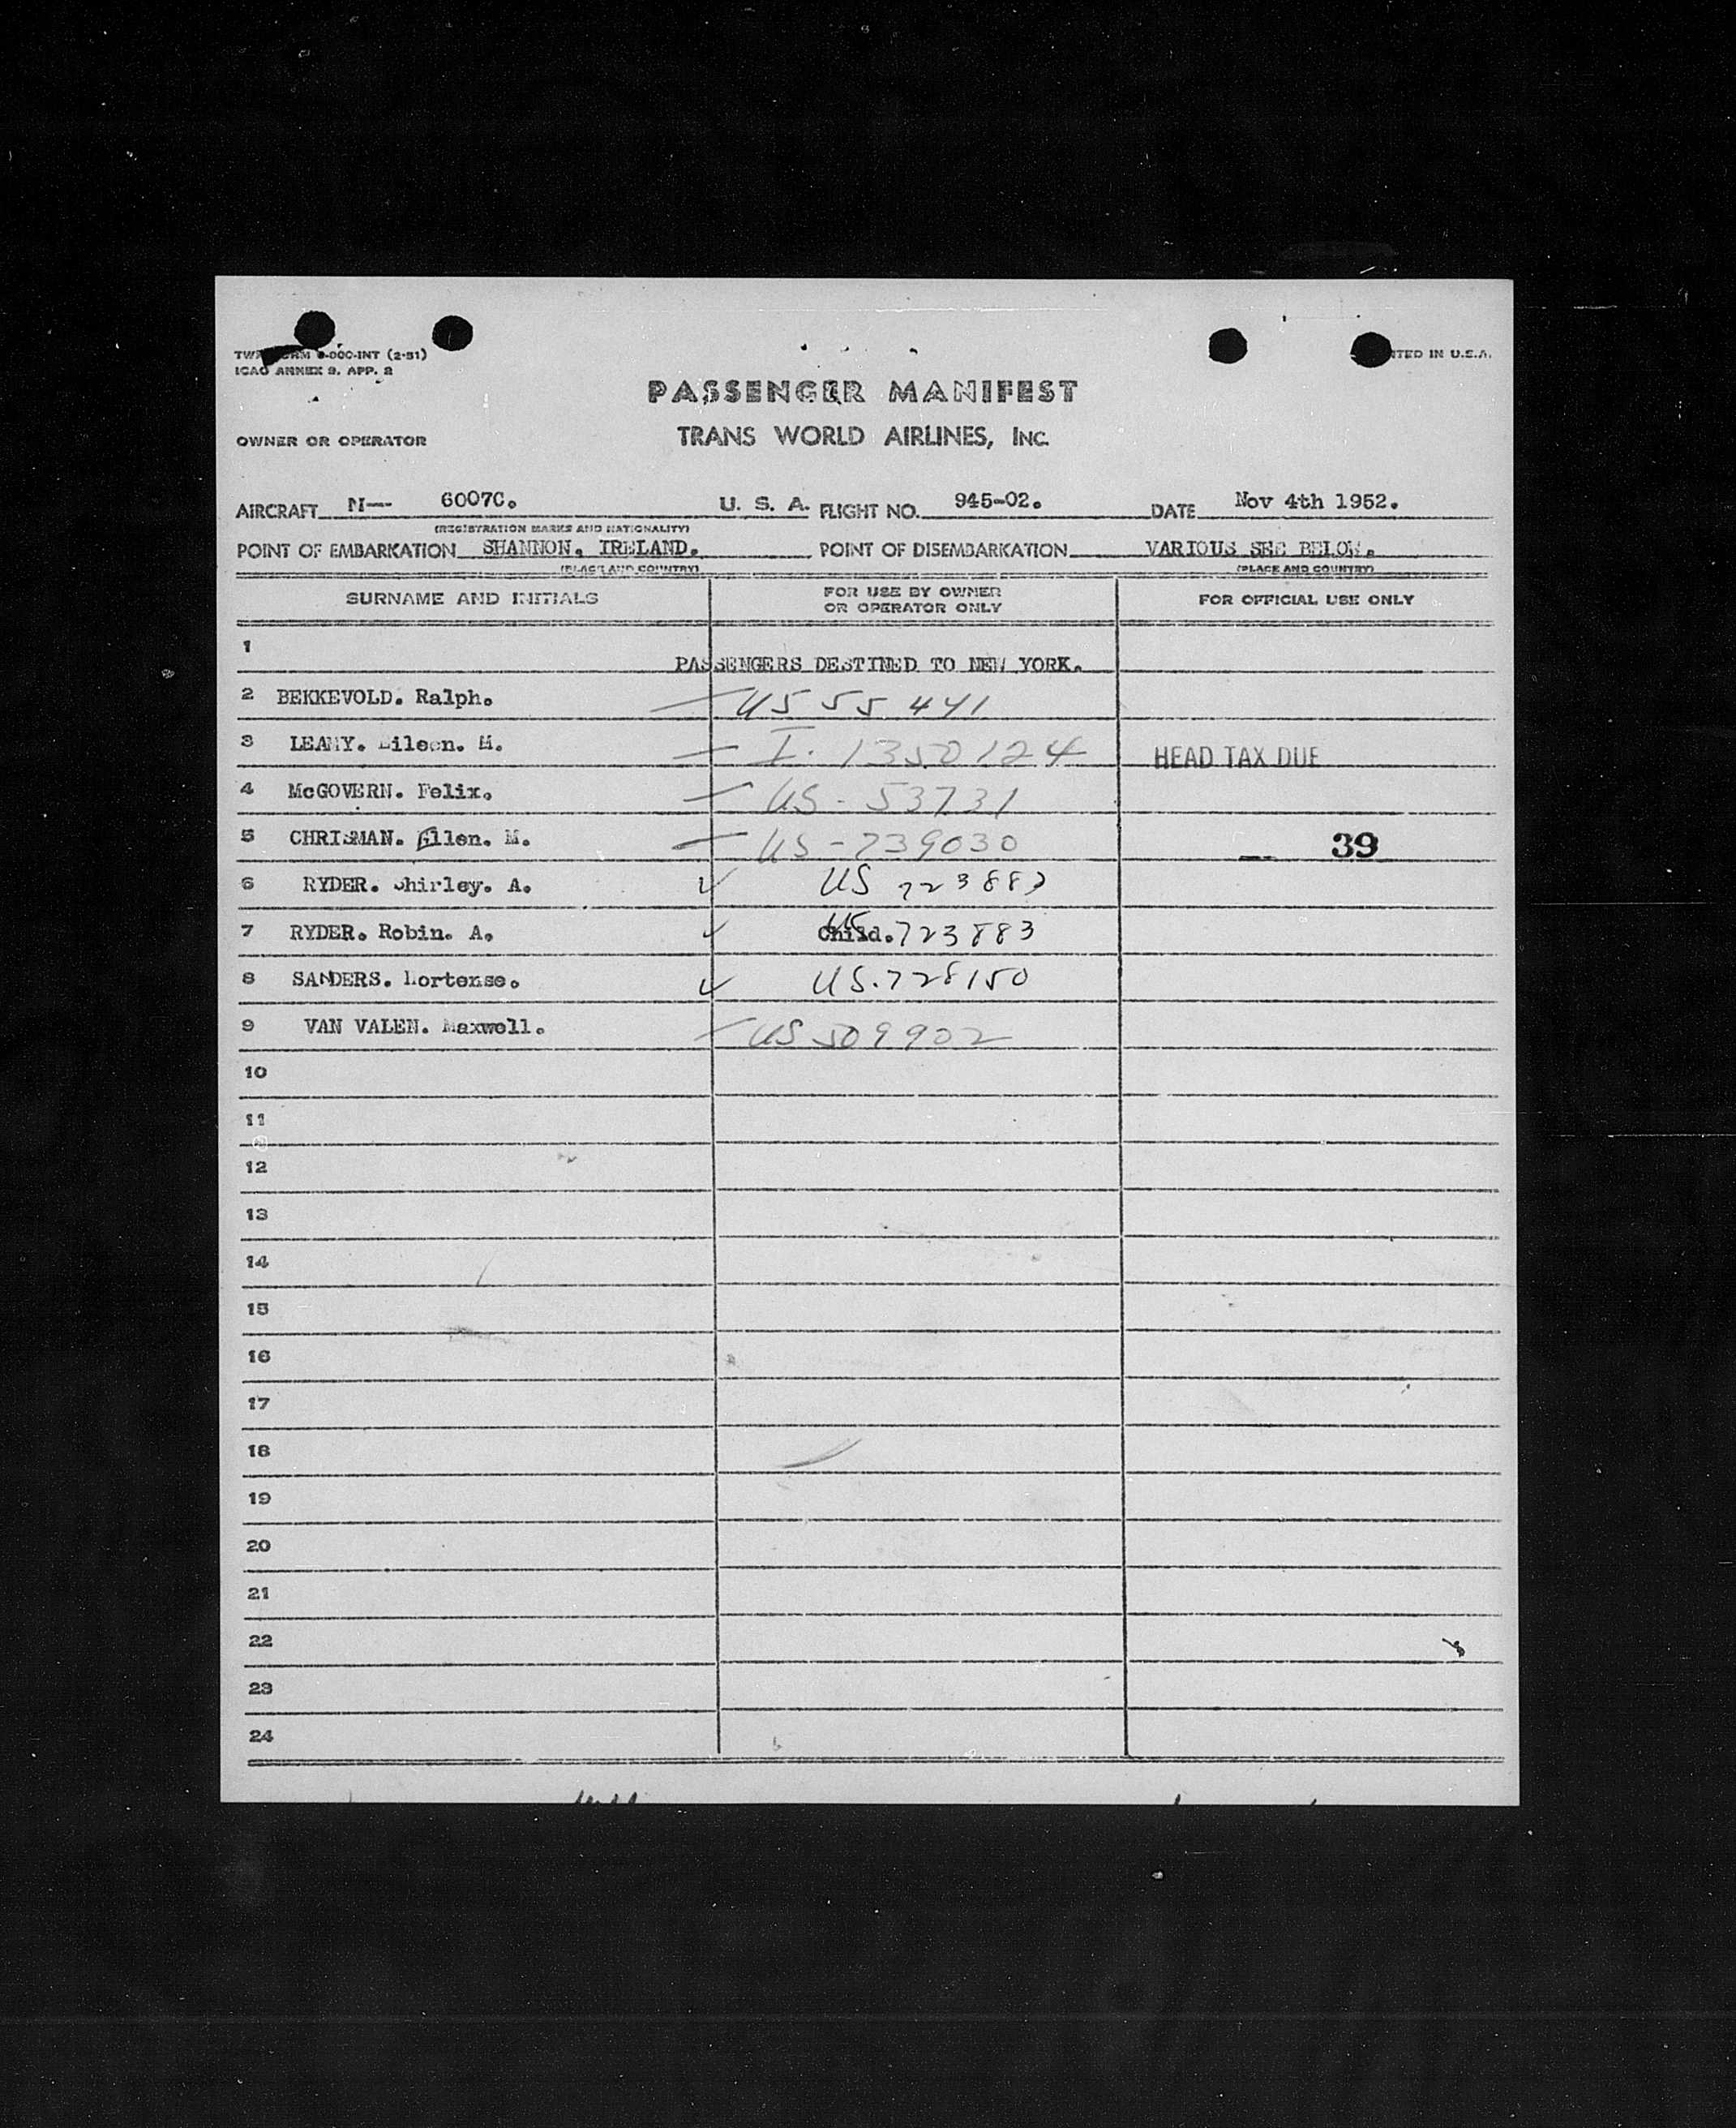 ICAO ANNEX 9. APP. 2
PRINTED IN U.S.A.
PASSENGER MANIFEST
OWNER OR OPERATOR TRANS WORLD AIRLINES, INC.
AIRCRAFT N— 6007C. U. S. A. FLIGHT NO. 945-02. DATE Nov 4th 1952.
(REGISTRATION MARKS AND NATIONALITY)
POINT OF EMBARKATION SHANNON, IRELAND. POINT OF DISEMBARKATION VARIOUS SEE BELOW.
(PLACE AND COUNTRY) (PLACE AND COUNTRY)
SURNAME AND INITIALS FOR USE BY OWNER OR OPERATOR ONLY FOR OFFICIAL USE ONLY
1 PASSENGERS DESTINED TO NEW YORK.
2 BEKKEVOLD. Ralph. US 55 441
3 LEAMY. Eileen. M. I. 1350124 HEAD TAX DUE
4 McGOVERN. Felix. US - 53731
5 CHRISMAN. Ellen. M. US - 739030 39
6 RYDER. Shirley. A. US 723883
7 RYDER. Robin. A. Child. US 723883
8 SANDERS. Hortense. US. 728150
9 VAN VALEN. Maxwell. US 509902
10
11
12
13
14
15
16
17
18
19
20
21
22
23
24